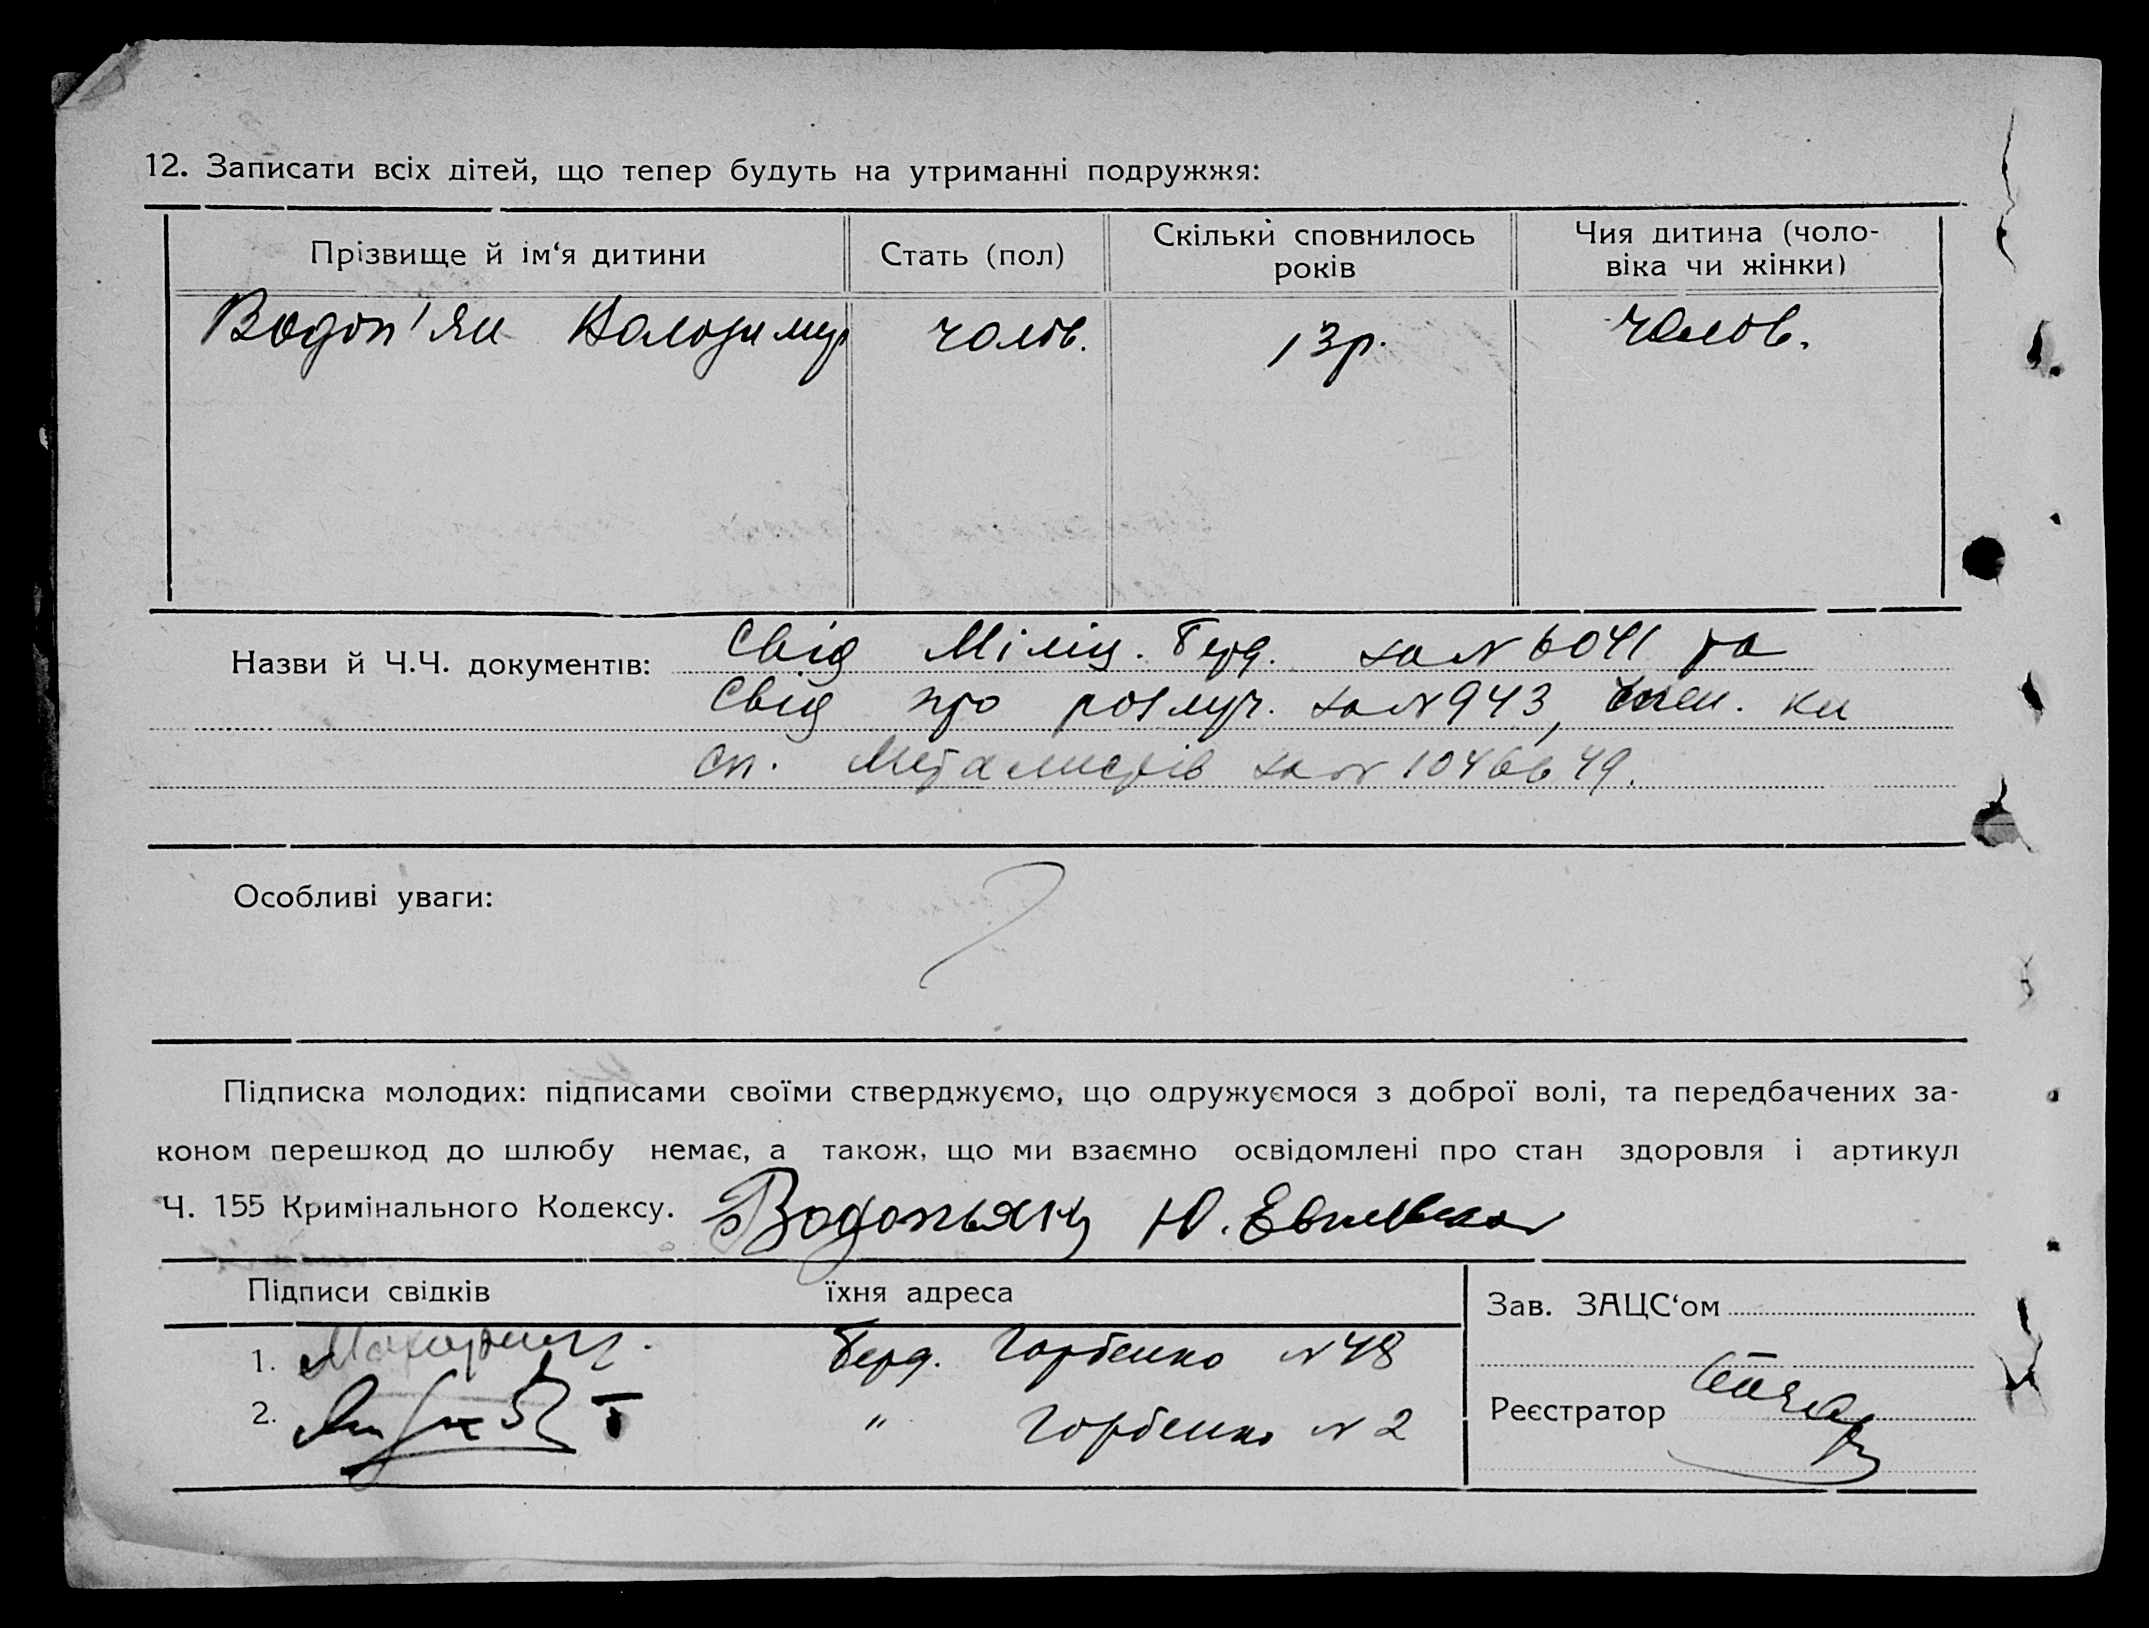 12. Записати всіх дітей, що тепер будуть на утриманні подружжя:
Прізвище й ім‘я дитини Стать (пол) Скільки сповнилось років Чия дитина (чоловіка чи жінки)
Водоп'ян Володимир чолов. 13р. чолов.
Назви й Ч.Ч. документів: Свід Міліц. Берд. за № 6041 та
Свід про розлуч. за № 943, член. кн
сп. Металистів за № 1046649.
Особливі уваги:
Підписка молодих: підписами своїми стверджуємо, що одружуємося з доброї волі, та передбачених за-
коном перешкод до шлюбу немає, а також, що ми взаємно освідомлені про стан здоровля і артикул
Ч. 155 Кримінального Кодексу. Водопьянц Ю.
Підписи свідків їхня адреса Зав. ЗАЦС‘ом
1. Берд. Горбенко № 48
2. " Горбенко № 2 Реєстратор